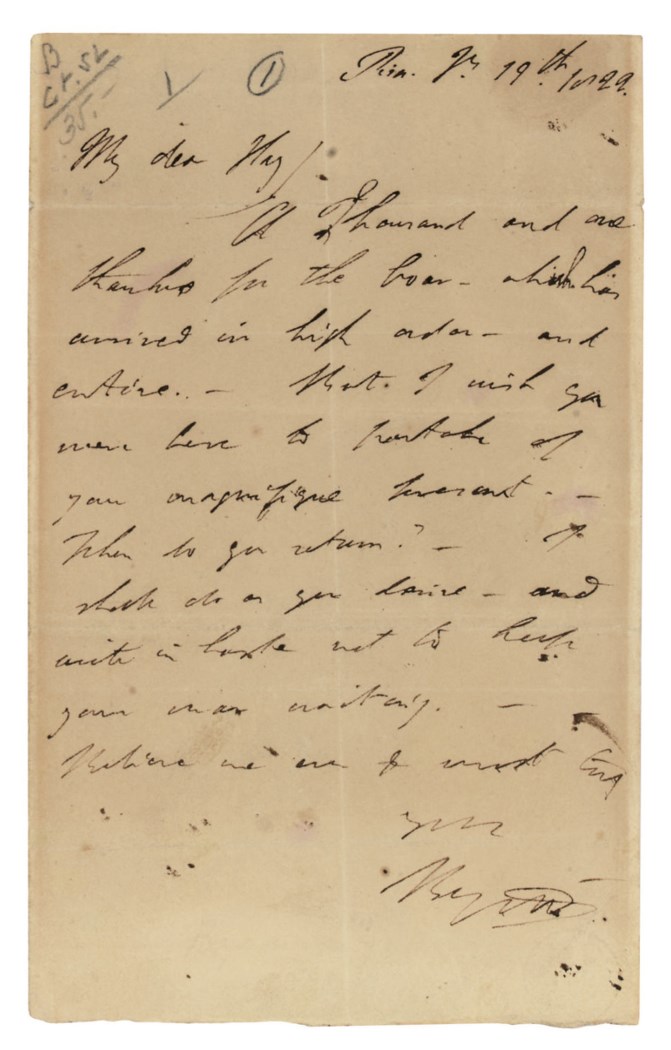 B
35.-
1 ①
Pisa. Jy. 19th. 1822.
My dear Hay/
A Thousand and one
thanks for the boar - which has
arrived in high order - and
entire. - But I wish you
were here to partake of
your magnifique present. -
When do you return? - I
shall do as you desire - and
write in haste not to keep
your man waiting. -
Believe me ever & most truly
yours
Byron.